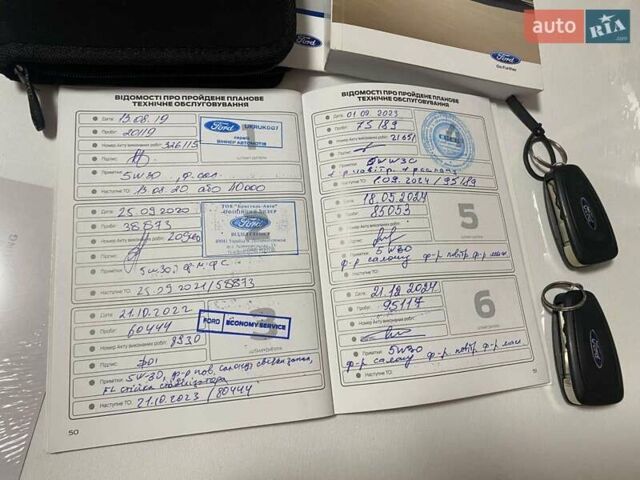 auto RIA.com
Ford
Go Further
ВІДОМОСТІ ПРО ПРОЙДЕНЕ ПЛАНОВЕ
ТЕХНІЧНЕ ОБСЛУГОВУВАННЯ
Дата: 13.08.19
Пробіг: 20119
Номер Акту виконаних робіт: 326115
Підпис:
Примітки: 5W30, ф.сал.
Наступне ТО: 13.08.20 або 40000
Ford UKRAVTO
1
Дата: 25.09.2020
Пробіг: 38873
Номер Акту виконаних робіт:
Підпис:
Примітки: 5W30,
Наступне ТО: 25.09.2021/58873
ОФІЦІЙНИЙ ДИЛЕР
Ford
Дата: 21.10.2022
Пробіг: 60444
Номер Акту виконаних робіт: 8930
Підпис:
Примітки: 5W-30, ф-р пов,
Наступне ТО: 21.10.2023/80444
FORD ECONOMY SERVICE
3
50
ВІДОМОСТІ ПРО ПРОЙДЕНЕ ПЛАНОВЕ
ТЕХНІЧНЕ ОБСЛУГОВУВАННЯ
Дата: 01.09.2023
Пробіг: 75189
Номер Акту виконаних робіт: 21651
Підпис:
Примітки: 5W30
Наступне ТО: 1.09.2024/95189
4
Дата: 18.05.2024
Пробіг: 85053
Номер Акту виконаних робіт:
Підпис:
Примітки: 5W30
ф-р салону ф-р повітр. ф-р масл
Наступне ТО:
5
Дата: 21.12.2024
Пробіг: 95117
Номер Акту виконаних робіт:
Підпис:
Примітки: 5W30
ф-р салону ф-р повітр. ф-р масл
Наступне ТО:
6
51
Ford
Ford